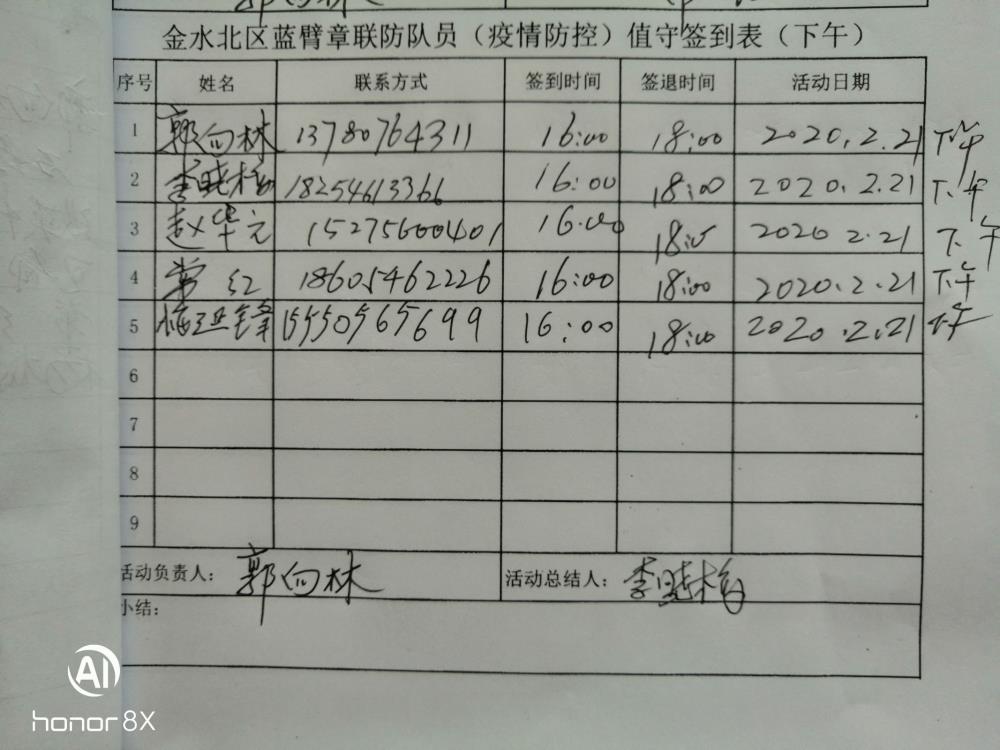 金水北区蓝臂章联防队员（疫情防控）值守签到表（下午）
序号 姓名 联系方式 签到时间 签退时间 活动日期
1 郭向林 13780764311 16:00 18:00 2020.2.21 下午
2 李晓梅 18254613366 16:00 18:00 2020.2.21 下午
3 赵华元 15275600401 16:00 18:00 2020 2.21 下午
4 常红 18605462226 16:00 18:00 2020.2.21 下午
5 15550565699 16:00 18:00 2020.2.21 下午
6
7
8
9
活动负责人: 郭向林 活动总结人: 李晓梅
小结:
AI
honor 8X